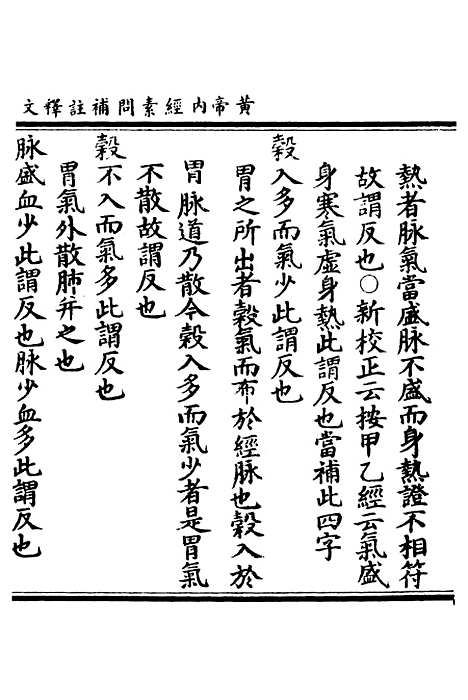 黃帝內經素問補註釋文
熱者脉氣當盛脉不盛而身熱證不相符
故謂反也○新校正云按甲乙經云氣盛
身寒氣虛身熱此謂反也當補此四字
穀入多而氣少此謂反也
胃之所出者穀氣而布於經脉也穀入於
胃脉道乃散今穀入多而氣少者是胃氣
不散故謂反也
穀不入而氣多此謂反也
胃氣外散肺并之也
脉盛血少此謂反也脉少血多此謂反也